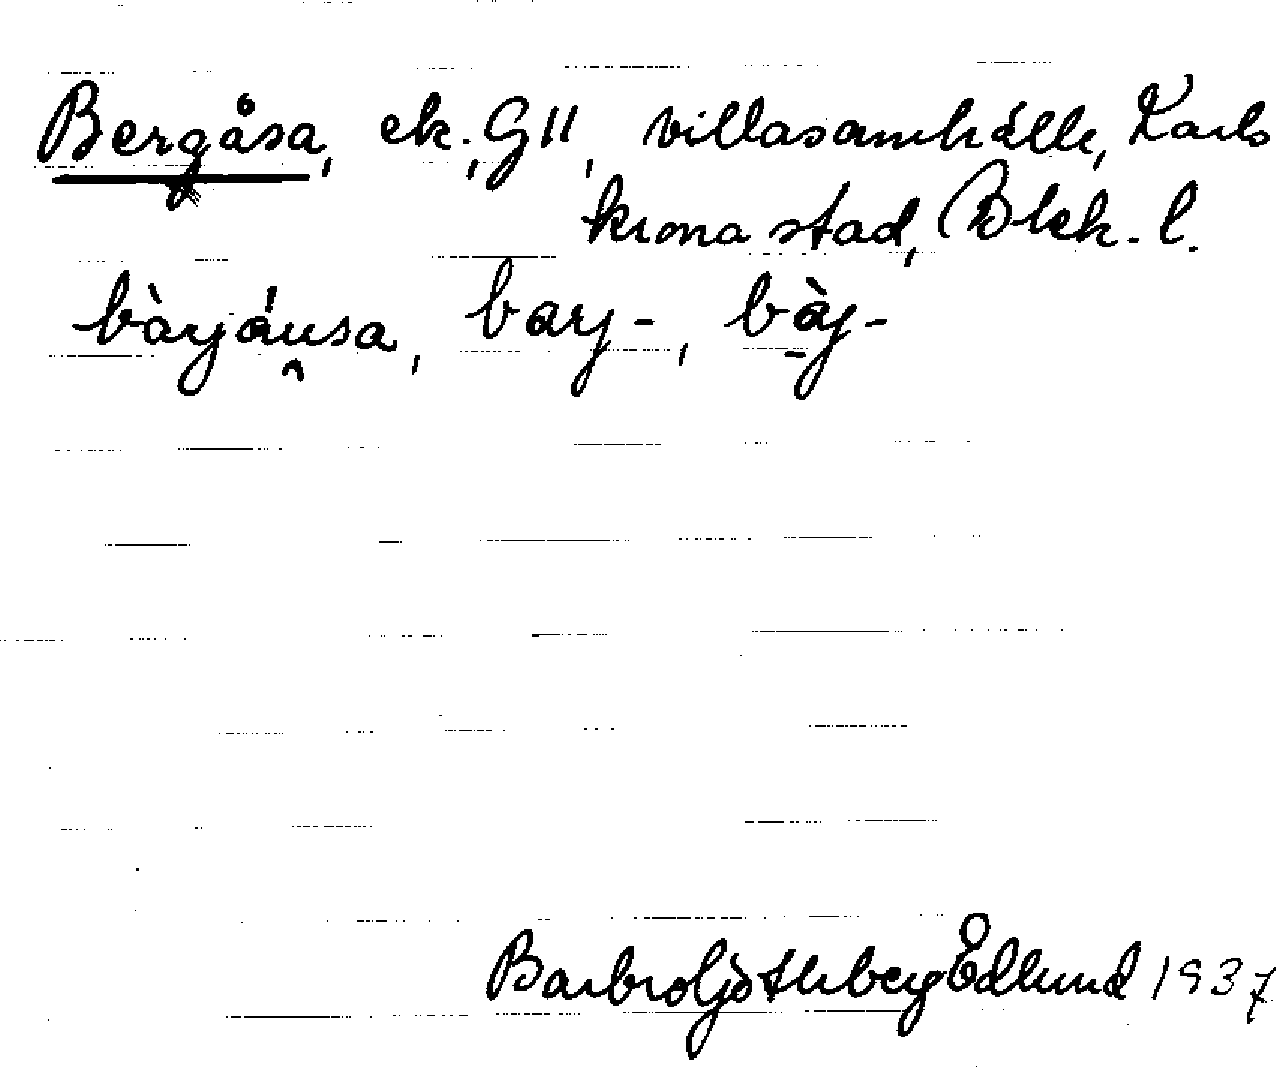 Bergåsa, ek., G11, villasamhälle, Karls
krona stad, Blek. l.
bàrjáusa, barj-, bàj-
Barbro Söderberg Edlund 1937